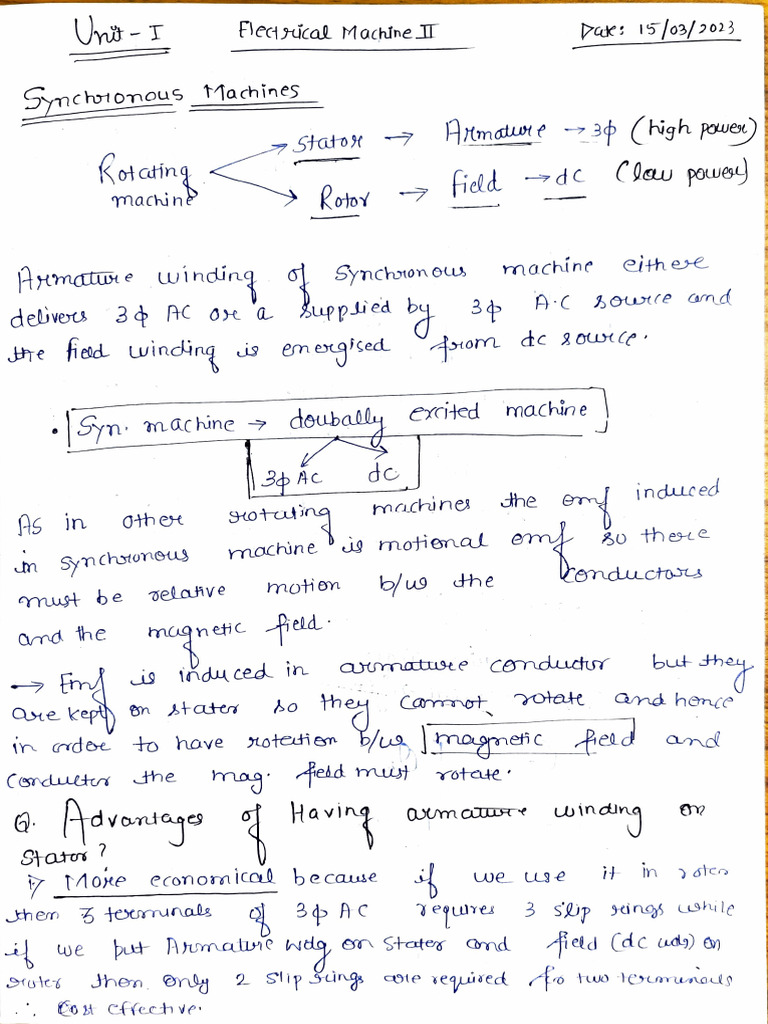 Unit - I Electrical Machine II Date: 15/03/2023
Synchronous Machines
Rotating machine → Stator → Armature → 3ϕ (high power)
→ Rotor → Field → dC (low power)
Armature winding of synchronous machine either
delivers 3ϕ AC or a supplied by 3ϕ A.C source and
the field winding is energised from dc source.
• Syn. machine → doubally excited machine
3ϕ AC dc
As in other rotating machines the emf induced
in synchronous machine is motional emf so there
must be relative motion b/w the conductors
and the magnetic field.
→ Emf is induced in armature conductor but they
are kept on stater so they cannot rotate and hence
in order to have rotation b/w magnetic field and
conductor the mag. field must rotate.
Q. Advantages of Having armature winding on
stator?
i) More economical because if we use it in roter
then 3 terminals of 3ϕ AC requires 3 slip rings while
if we put Armature wdg on stater and field (dc wdg) on
roter then only 2 slip rings are required for two terminous
∴ Cost effective.